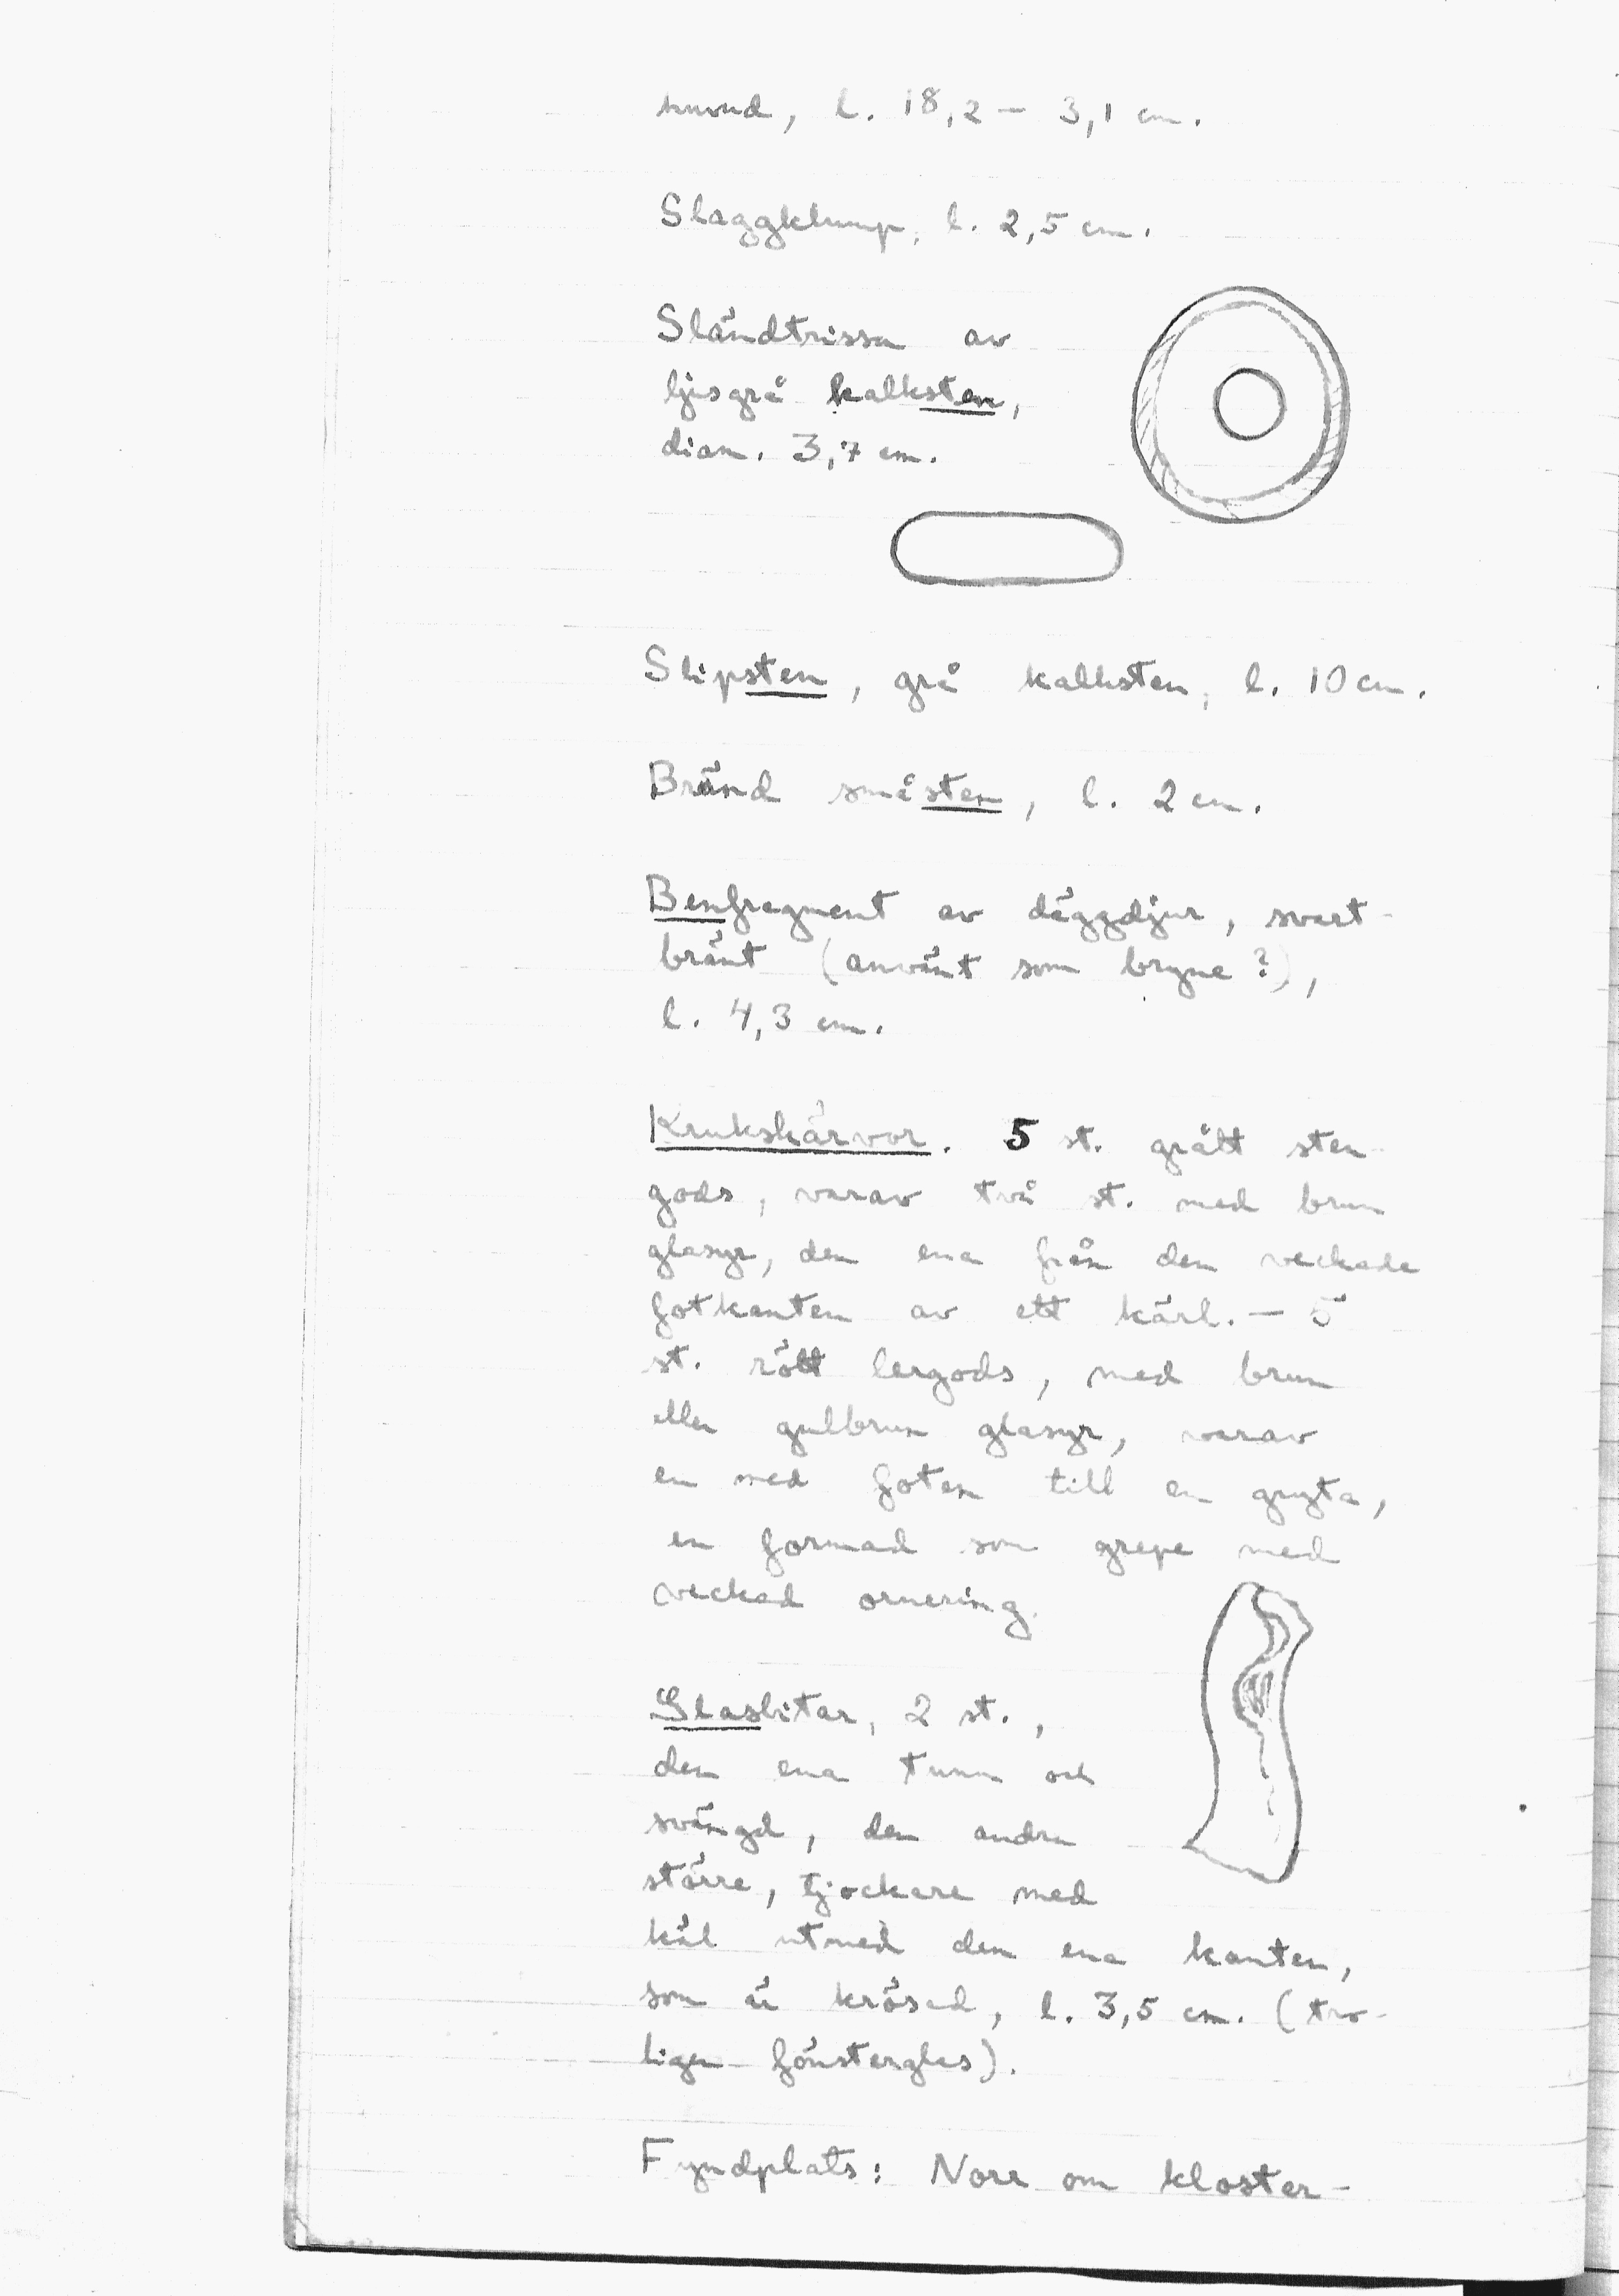 huvud, l. 18,2 – 3,1 cm.
Slaggklump, l. 2,5 cm.
Sländtrissa av
ljusgrå kalksten,
diam. 3,7 cm.
Slipsten, grå kalksten, l. 10 cm.
Bränd småsten, l. 2 cm.
Benfragment av däggdjur, svart-
bränt (använt som bryne?),
l. 4,3 cm.
Krukskärvor. 5 st. grått sten-
gods, varav två st. med brun
glasyr, den ena från den veckade
fotkanten av ett kärl. – 5
st. rött lergods, med brun
eller gulbrun glasyr, varav
en med foten till en gryta,
en formad som grepe med
veckad ornering.
Glasbitar, 2 st.,
den ena tunn och
svängd, den andra
större, tjockare med
kål utmed den ena kanten,
som är krösad, l. 3,5 cm. (tro-
ligen fönsterglas).
Fyndplats: Norr om kloster-